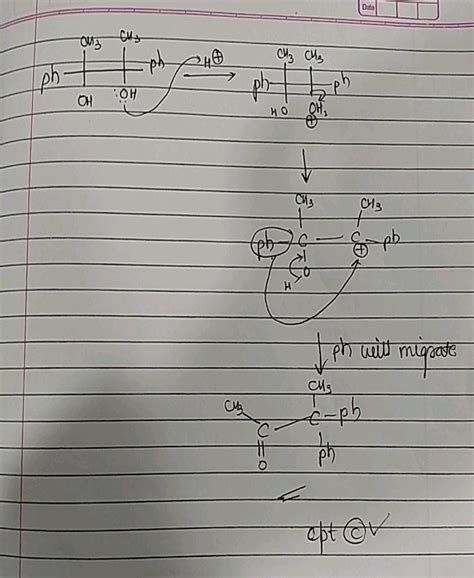 Date
CH3 CH3
ph ph H⊕
OH :OH
CH3 CH3
ph ph
HO OH2
⊕
CH3 CH3
ph C C ph
⊕
H O
ph will migrate
CH3
CH3 C ph
C ph
O
opt ⓒ ✓